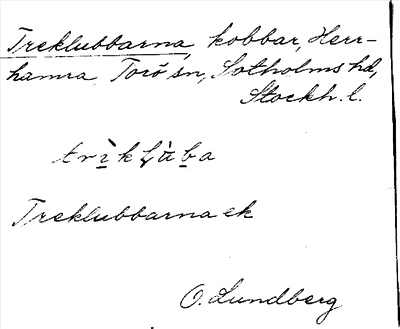 Treklubbarna, kobbar, Herr-
hamra Torö sn, Sotholms hd,
Stockh. l.
trìkl̥ùba
Treklubbarna ek
O. Lundberg